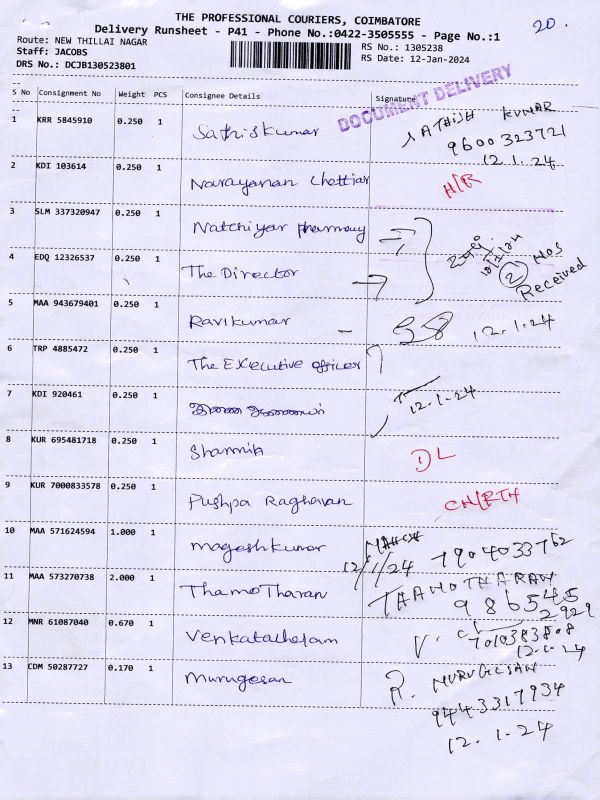 THE PROFESSIONAL COURIERS, COIMBATORE
20.
Delivery Runsheet - P41 - Phone No.:0422-3505555 - Page No.:1
Route: NEW THILLAI NAGAR
Staff: JACOBS
DRS No.: DCJB130523801
RS No.: 1305238
RS Date: 12-Jan-2024
DOCUMENT DELIVERY
S No Consignment No Weight PCS Consignee Details Signature
1 KRR 5845910 0.250 1 Sathiskumar SATHISH KUMAR
9600323721
12.1.24
2 KDI 103614 0.250 1 Narayanan Chettiar H/R
3 SLM 337320947 0.250 1 Natchiyar pharmacy
4 EDQ 12326537 0.250 1 The Director
2 Nos
Received
5 MAA 943679401 0.250 1 Ravikumar - 12.1.24
6 TRP 4885472 0.250 1 The Executive officer
7 KDI 920461 0.250 1 12.1.24
8 KUR 695481718 0.250 1 Sharmila DL
9 KUR 7000833578 0.250 1 Pushpa Raghavan
10 MAA 571624594 1.000 1 Mageshkumar
12/1/24 7904033762
11 MAA 573270738 2.000 1 Thamo Tharan THAMOTHARAN
986545
2929
12 MNR 61087040 0.670 1 Venkatachalam V.
12.1.24
13 CDM 50287727 0.170 1 Murugesan R. MURUGESAN
9443317934
12.1.24